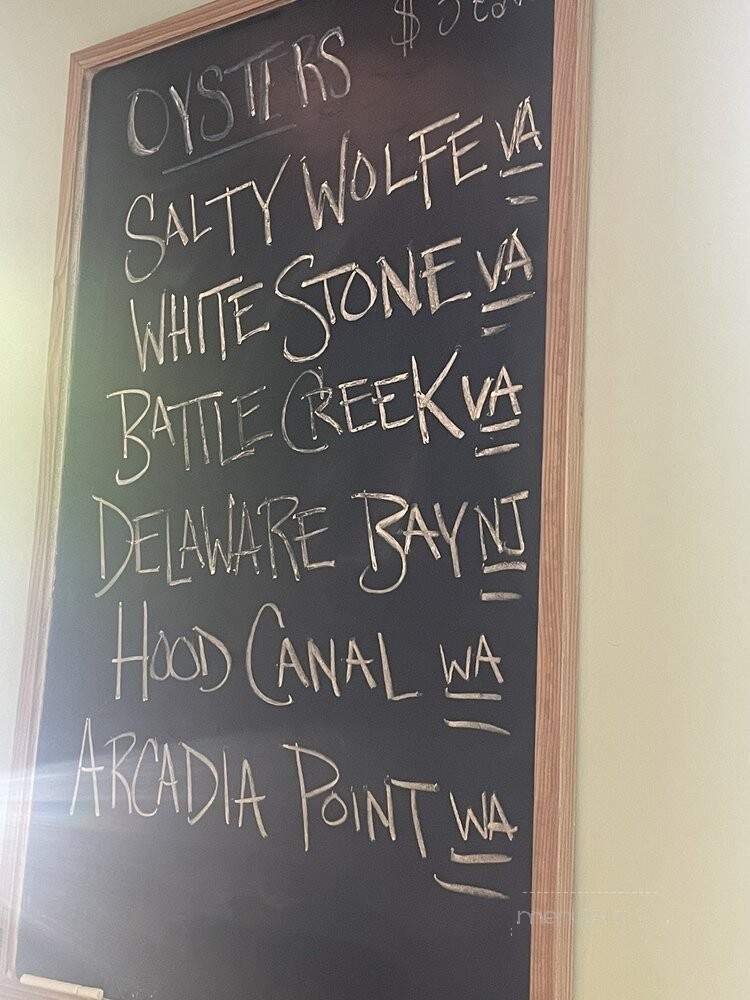 OYSTERS
SALTY WOLFE VA
WHITE STONE VA
BATTLE CREEK VA
DELAWARE BAY NJ
HOOD CANAL WA
ARCADIA POINT WA